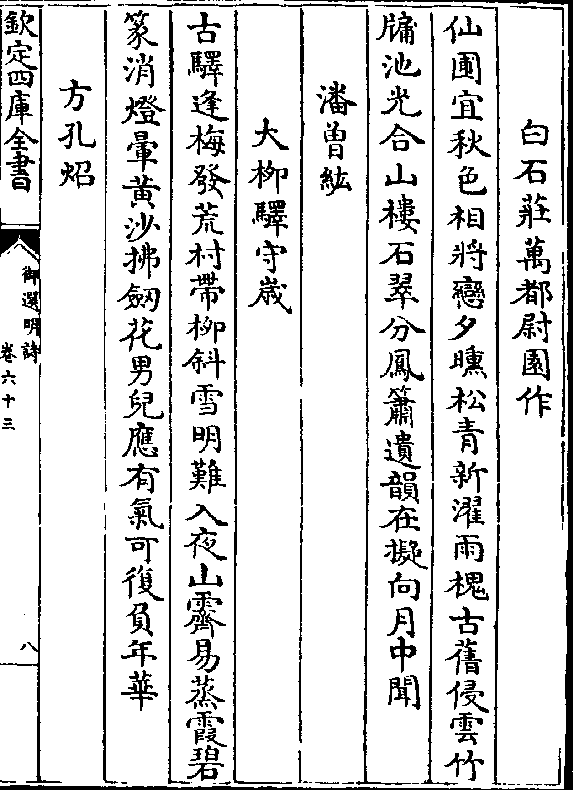 白石莊萬都尉園作
仙園宜秋色相將戀夕曛松青新濯雨槐古舊侵雲竹
牖池光合山樓石翠分鳳簫遺韻在擬向月中聞
潘曾紘
大柳驛守歲
古驛逢梅發荒村帶柳斜雪明難入夜山霽易蒸霞碧
篆消燈暈黃沙拂劒花男兒應有氣可復負年華
方孔炤
欽定四庫全書
御選明詩
卷六十三
八